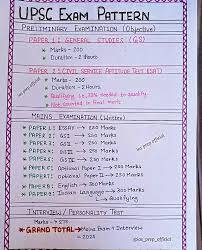 UPSC EXAM PATTERN
PRELIMINARY EXAMINATION (Objective)
PAPER 1 : GENERAL STUDIES (GS)
Marks - 200
Duration - 2 Hours
PAPER 2 : CIVIL SERVICE APTITUDE TEST (CSAT)
Marks - 200
Duration - 2 Hours
Qualifying i.e. 33% needed to qualify
Not counted in final merit
MAINS EXAMINATION (Written)
PAPER 1 : ESSAY → 250 Marks
PAPER 2 : GS I → 250 Marks
PAPER 3 : GS II → 250 Marks
PAPER 4 : GS III → 250 Marks
PAPER 5 : GS IV → 250 Marks
PAPER 6 : Optional Paper I → 250 Marks
PAPER 7 : Optional Paper II → 250 Marks
PAPER 8 : English → 300 Marks
PAPER 9 : Indian Language → 300 Marks
→ Qualifying
INTERVIEW / PERSONALITY TEST
Marks - 275
GRAND TOTAL → Mains Exam + Interview
= 2025